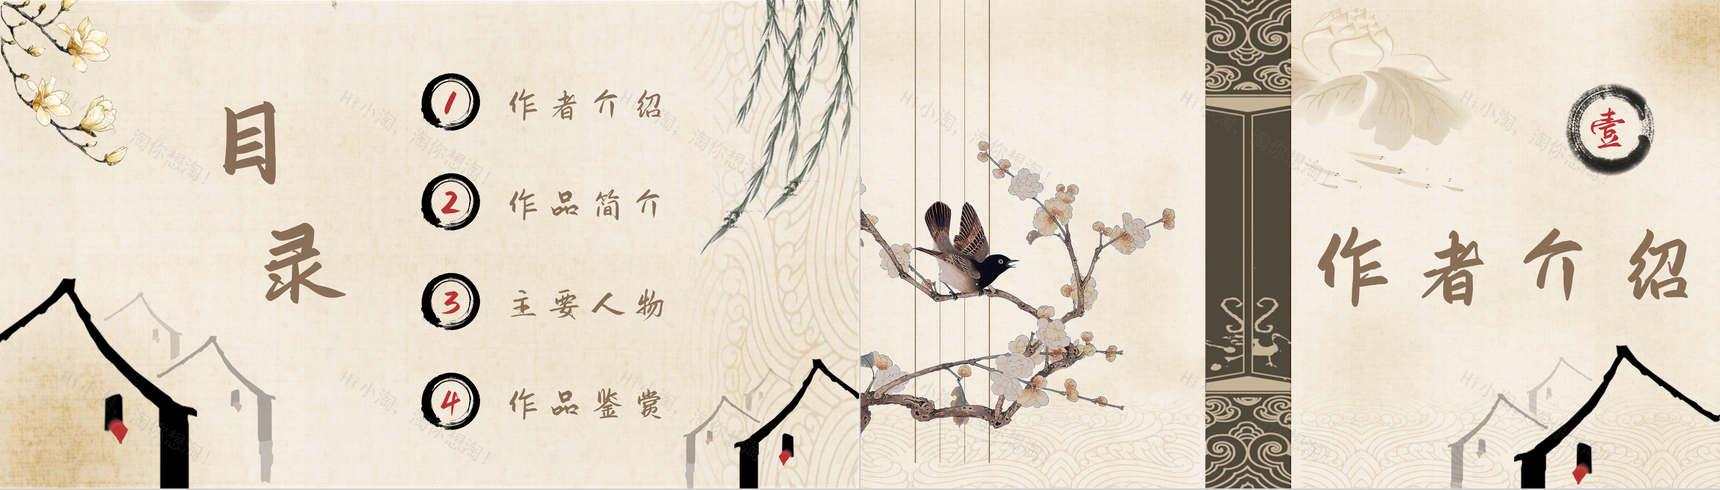 目录
1 作者介绍
2 作品简介
3 主要人物
4 作品鉴赏
壹
作者介绍
Hi小淘，淘你想淘！